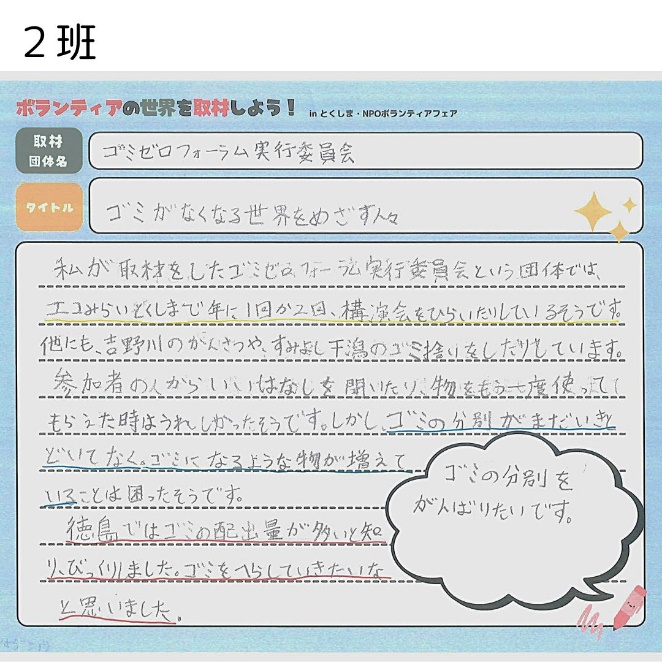 2班
ボランティアの世界を取材しよう！ in とくしま・NPOボランティアフェア
取材
団体名
ゴミゼロフォーラム実行委員会
タイトル
ゴミがなくなる世界をめざす人々
私が取材をしたゴミゼロフォーラム実行委員会という団体では、
エコみらいとくしまで年に1回か2回、構演会をひらいたりしているそうです。
他にも、吉野川のかんさつや、すみよし干潟のゴミ捨いをしたりしています。
参加者の人からいいはなしを聞いたり、物をもう一度使って
もらえた時はうれしかったそうです。しかし、ゴミの分別がまだいき
どいてなく。ゴミになるような物が増えて
いることは困ったそうです。
徳島ではゴミの配出量が多いと知
り、びっくりしました。ゴミをへらしていきたいな
と思いました。
ゴミの分別を
がんばりたいです。